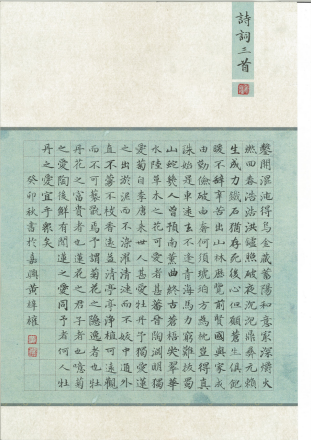 詩詞三首
鑿開混沌得烏金藏蓄陽和意最深爝火
燃回春浩浩洪爐照破夜沉沉鼎彝元賴
生成力鐵石猶存死後心但願蒼生俱飽
暖不辭辛苦出山林歷覽前賢國與家成
由勤儉破由奢何須琥珀方為枕豈得真
珠始是車運去不逢青海馬力窮難拔蜀
山蛇幾人曾預南薰曲終古蒼梧哭翠華
水陸草木之花可愛者甚蕃晉陶淵明獨
愛菊自李唐來世人甚愛牡丹予獨愛蓮
之出於泥而不染濯清漣而不妖中通外
直不蔓不枝香遠益清亭亭淨植可遠觀
而不可褻翫焉予謂菊花之隱逸者也牡
丹花之富貴者也蓮花之君子者也噫菊
之愛陶後鮮有聞蓮之愛同予者何人牡
丹之愛宜乎眾矣
癸卯秋書於嘉興黃